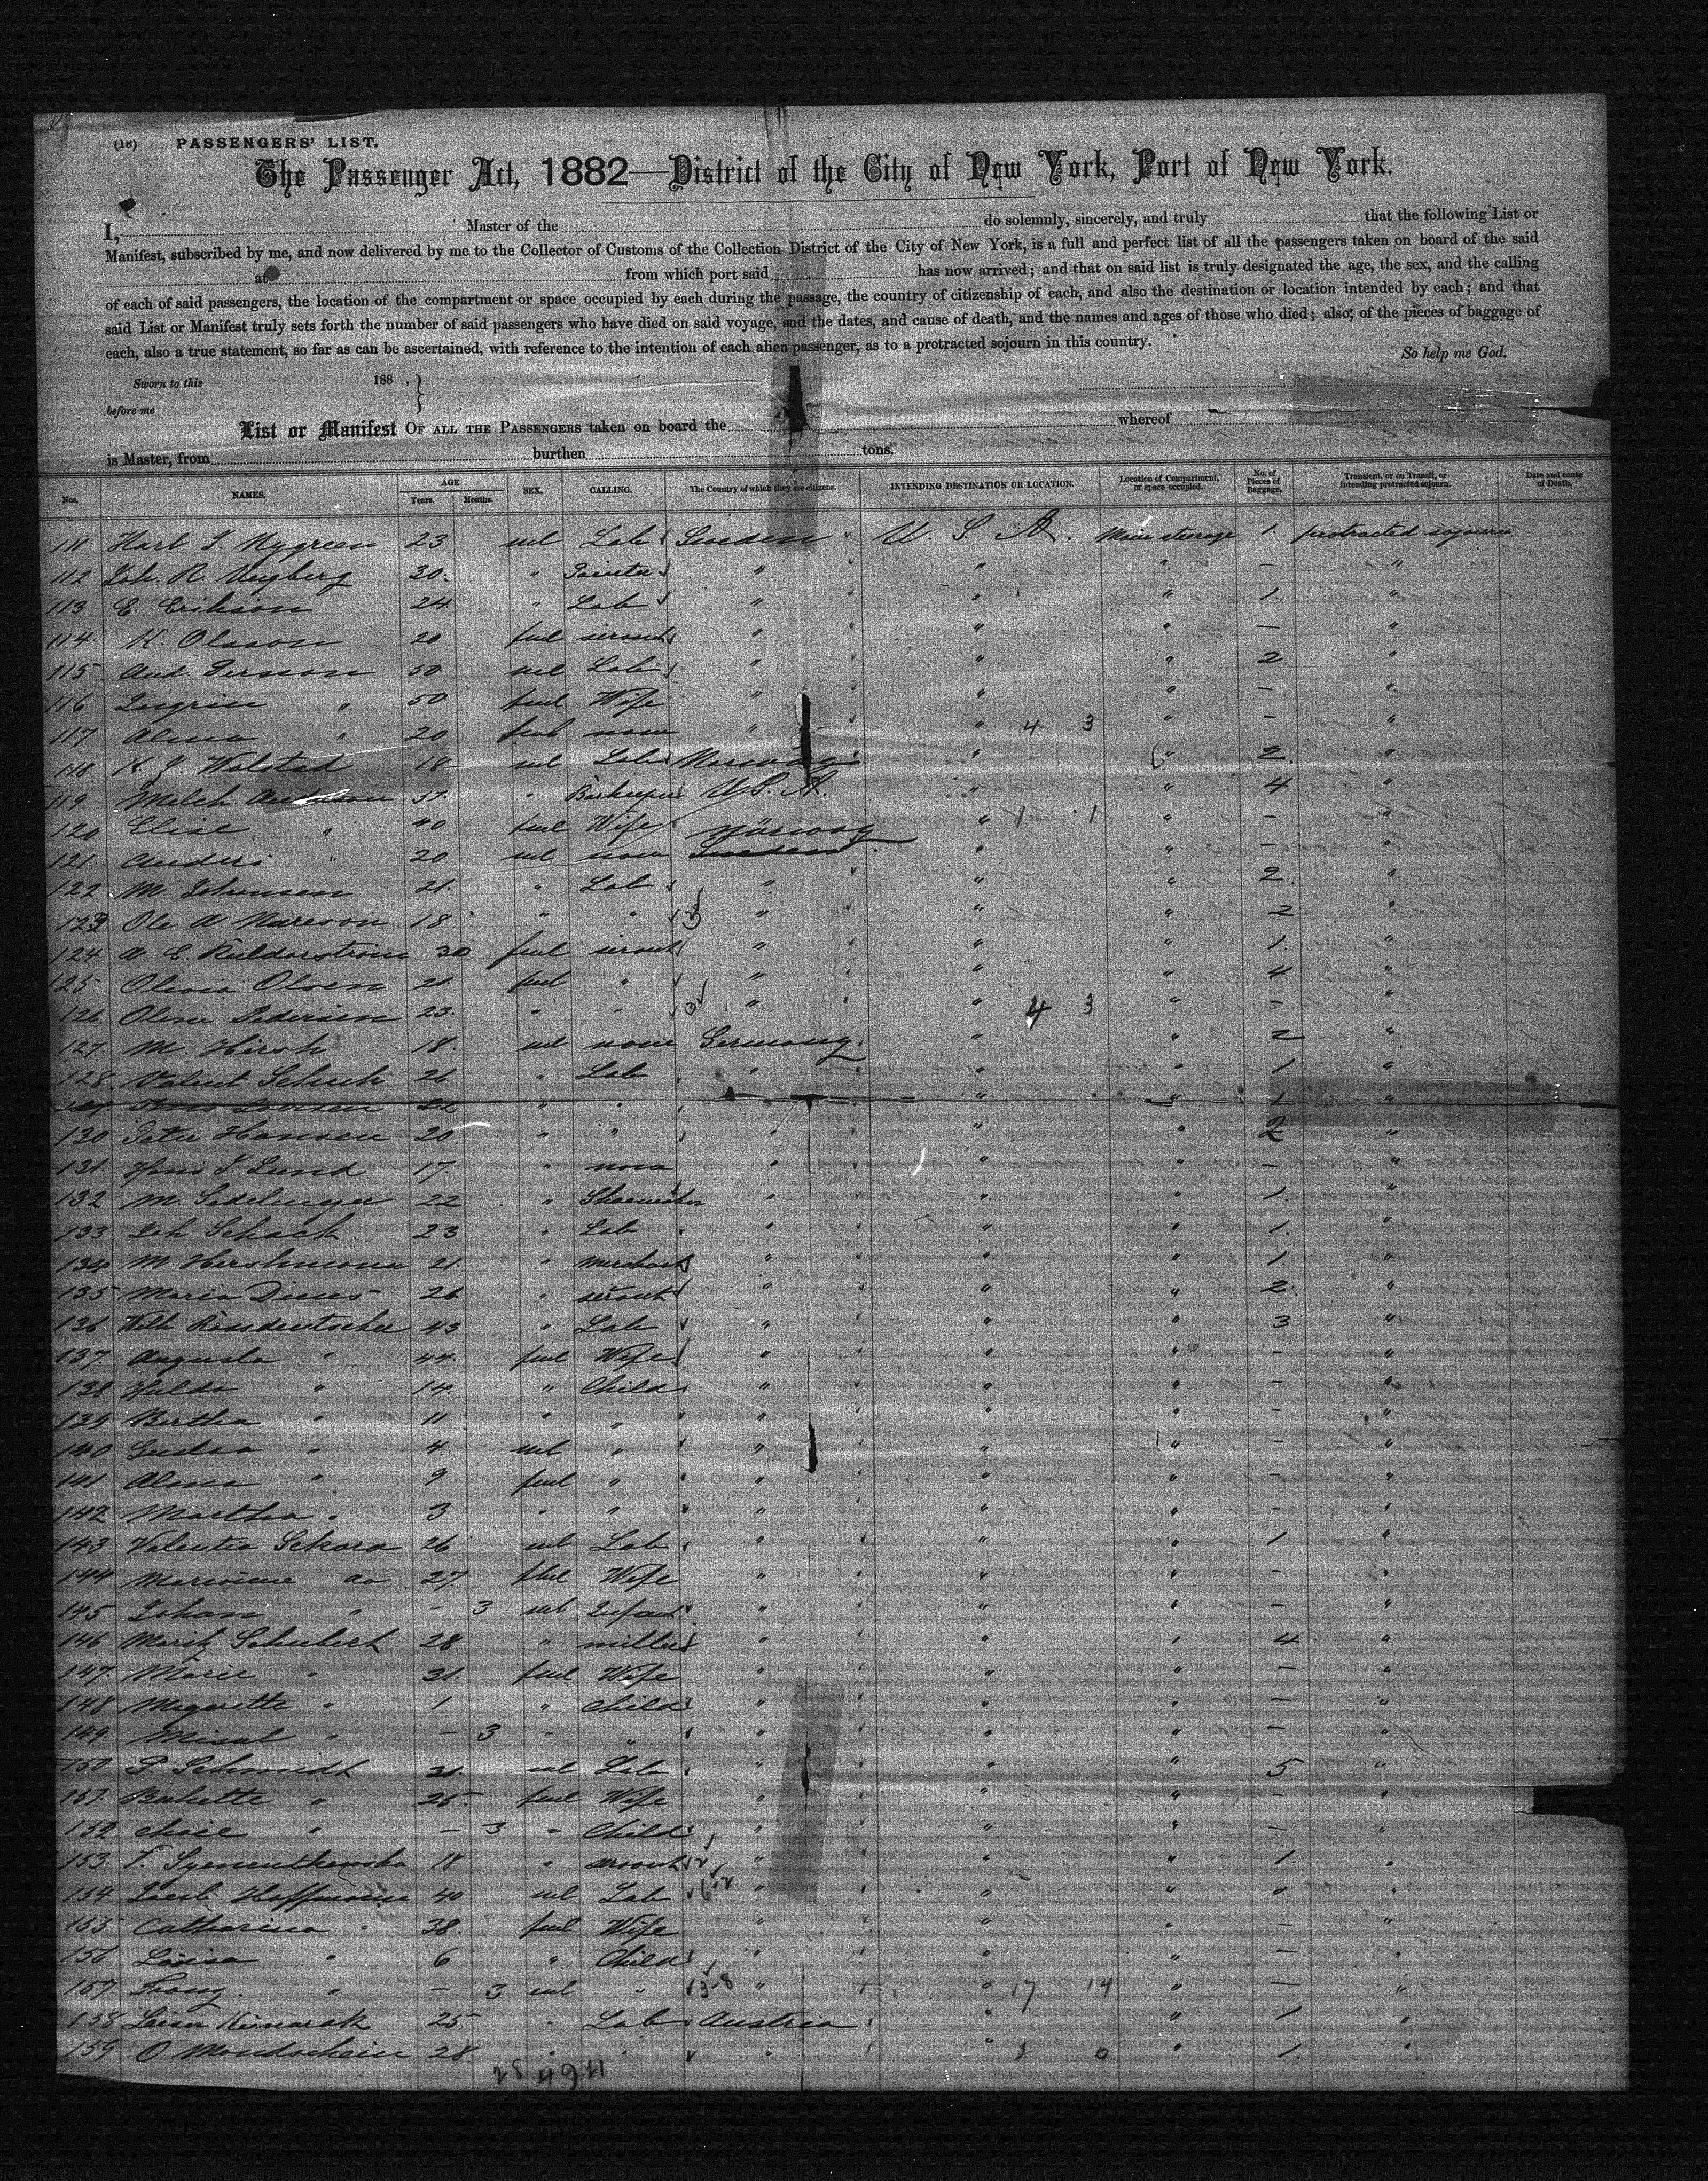 (18) PASSENGERS' LIST.
The Passenger Act, 1882—District of the City of New York, Port of New York.
I, Master of the do solemnly, sincerely, and truly that the following List or
Manifest, subscribed by me, and now delivered by me to the Collector of Customs of the Collection District of the City of New York, is a full and perfect list of all the passengers taken on board of the said
at from which port said has now arrived; and that on said list is truly designated the age, the sex, and the calling
of each of said passengers, the location of the compartment or space occupied by each during the passage, the country of citizenship of each, and also the destination or location intended by each; and that
said List or Manifest truly sets forth the number of said passengers who have died on said voyage, and the dates, and cause of death, and the names and ages of those who died; also, of the pieces of baggage of
each, also a true statement, so far as can be ascertained, with reference to the intention of each alien passenger, as to a protracted sojourn in this country.
So help me God.
Sworn to this 188 ,
before me
List or Manifest OF ALL THE PASSENGERS taken on board the whereof
is Master, from burthen tons.
Nos. NAMES. AGE Years. Months. SEX. CALLING. The Country of which they are citizens. INTENDING DESTINATION OR LOCATION. Location of Compartment, or space occupied. No. of Pieces of Baggage. Transient, or on Transit, or intending protracted sojourn. Date and cause of Death.
111 Nygreen 23 ml Lab Sweden U. S. A. Main steerage 1. protracted sojourn
112 Joh. R. 30. " Painter " " " — "
113 E. Erikson 24 " Lab " " " 1. "
114 K. Olsson 20 feml servant " " " — "
115 And. Person 50 ml Lab " " " 2 "
116 Ingrin " 50 feml Wife " " " — "
117 Alma " 20 feml none " " 4 3 " — "
118 Walstad 18 ml Lab Norway " " 2. "
119 Melch Anderson 37. " Barkeeper U. S. A. " " 4 "
120 Elise " 40 feml Wife Norway " 1 1 " — "
121 Anders " 20 ml none Sweden " " — "
122 M. Johnsen 21. " Lab " " " 2. "
123 Ole A. 18 " " " " " 2 "
124 A. C. 30 feml servant " " " 1. "
125 Olivia Olsen 21 feml " " " " 4 "
126 Oline Pedersen 23. " " " " 4 3 " — "
127. M. Hirsh 18. ml none Germany " " 2 "
128. Valent Schuh 26 " Lab " " " 1 "
130 Peter Hansen 20. " " " " " 2 "
131. Hans J Lund 17. " none " " " — "
132 M. 22 " Shoemaker " " " 1. "
133 Joh Schack 23 " Lab " " " 1. "
134 M Hershmann 21. " merchant " " " 1. "
135 Maria 26 " servant " " " 2. "
136 Wilh 43 " Lab " " " 3 "
137. Augusta " 44. feml Wife " " " — "
138 Hulda " 14. " Child " " " — "
139 Bertha " 11 " " " " " — "
140 Gustav " 4. ml " " " " — "
141 Alma " 9 feml " " " " — "
142 Martha " 3 " " " " " — "
143 Valentin Sekora 26 ml Lab " " " 1 "
144 do 27. feml Wife " " " — "
145 Johan " — 3 ml Infant " " " — "
146 Moritz Schubert 28 " miller " " " 4 "
147. Marie " 31. feml Wife " " " — "
148 Megarette " 1 " Child " " " — "
149. " — 3 " " " " " — "
150 P Schmidt 31. ml Lab " " " 5 "
151. Babette " 25. feml Wife " " " — "
152 " — 3 " Child " " " — "
153. 18 " servant " " " 1. "
154 Jacob Hoffmann 40 ml Lab " " " "
155 Catharina " 38. feml Wife " " " — "
156 Louisa " 6 " Child " " " — "
157 Franz " — 3 ml " " " 17 14 " — "
158 25 " Lab Austria " " 1 "
159 O Mondschein 28. " " " " 0 " 1. "